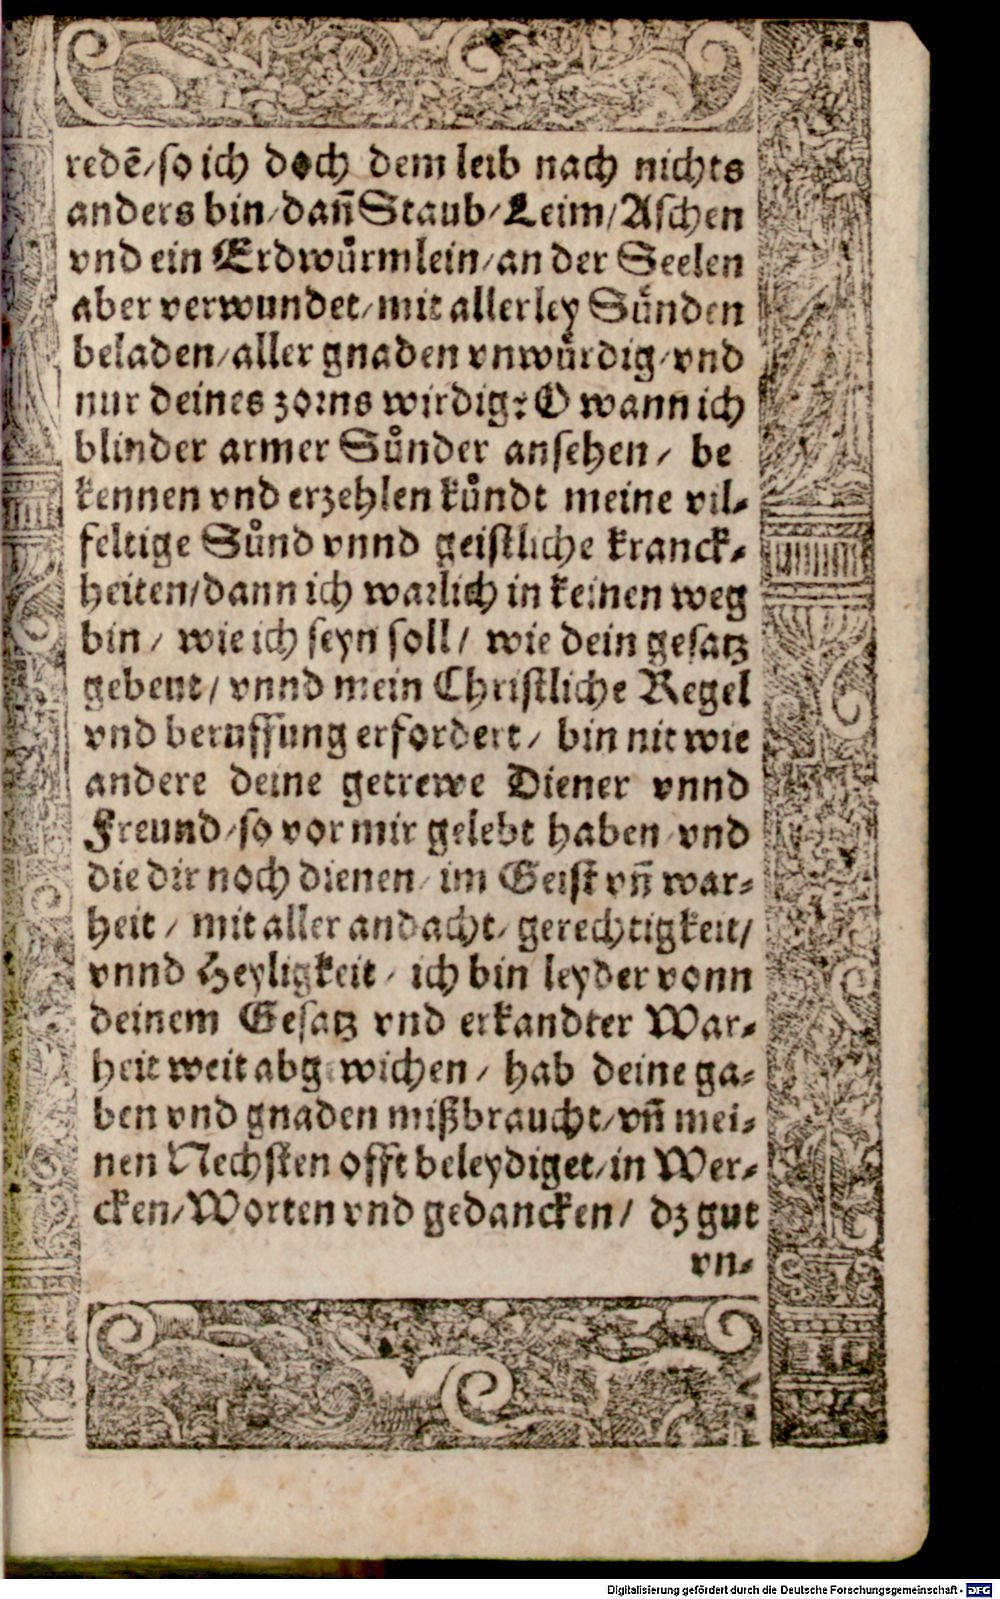 redē/so ich doch dem leib nach nichts
anders bin/dañ Staub/Leim/Aschen
vnd ein Erdwuͤrmlein/an der Seelen
aber verwundet/mit allerley Suͤnden
beladen/aller gnaden vnwuͤrdig/vnd
nur deines zorns wirdig: O wann ich
blinder armer Suͤnder ansehen/ be
kennen vnd erzehlen kuͤndt meine vil-
feltige Suͤnd vnnd geistliche kranck-
heiten/dann ich warlich in keinen weg
bin/ wie ich seyn soll/ wie dein gesatz
gebeut/ vnnd mein Christliche Regel
vnd beruffung erfordert/ bin nit wie
andere deine getrewe Diener vnnd
Freund/so vor mir gelebt haben vnd
die dir noch dienen/ im Geist vñ war-
heit/ mit aller andacht/ gerechtigkeit/
vnnd Heyligkeit/ ich bin leyder vonn
deinem Gesatz vnd erkandter War-
heit weit abgewichen/ hab deine ga-
ben vnd gnaden mißbraucht/vñ mei-
nen Nechsten offt beleydiget/in Wer-
cken/Worten vnd gedancken/ dz gut
vn-
Digitalisierung gefördert durch die Deutsche Forschungsgemeinschaft - DFG